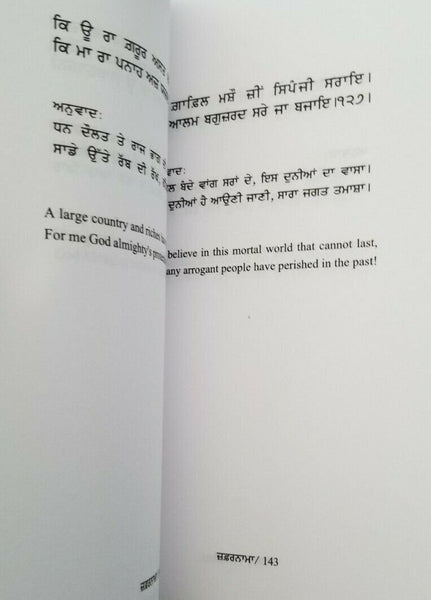 ਕਿ ਊ ਰਾ ਗ਼ਰੂਰ ਅਸਤ
ਕਿ ਮਾ ਰਾ ਪਨਾਹ ਅਜ਼
ਅਨੁਵਾਦ:
ਧਨ ਦੌਲਤ ਤੇ ਰਾਜ ਭਾਗ
ਸਾਡੇ ਉੱਤੇ ਰੱਬ ਦੀ
A large country and riches
For me God almighty's
ਗ਼ਾਫ਼ਿਲ ਮਸ਼ੌ ਜ਼ੀਂ ਸਿਪੰਜੀ ਸਰਾਇ।
ਆਲਮ ਬਗੁਜ਼ਰਦ ਸਰੇ ਜਾ ਬਜਾਇ।੧੨੭।
ਵਾਦ:
ਲ ਬੰਦੇ ਵਾਂਗ ਸਰਾਂ ਦੇ, ਇਸ ਦੁਨੀਆਂ ਦਾ ਵਾਸਾ।
ਦੁਨੀਆਂ ਹੈ ਆਉਣੀ ਜਾਣੀ, ਸਾਰਾ ਜਗਤ ਤਮਾਸ਼ਾ।
believe in this mortal world that cannot last,
any arrogant people have perished in the past!
ਜ਼ਫ਼ਰਨਾਮਾ/ 143